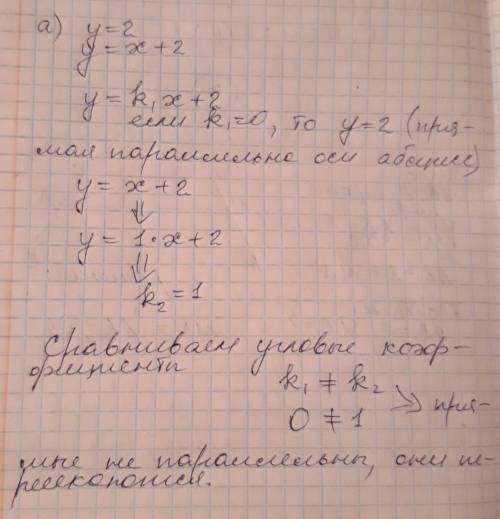 а) y = 2
y = x + 2
y = k₁x + 2
если k₁=0, то y = 2 (пря-
мая параллельна оси абсцисс)
y = x + 2
⇓
y = 1·x + 2
⇓
k₂ = 1
Сравниваем угловые коэф-
фициенты
k₁ ≠ k₂
0 ≠ 1 ⇒ пря-
мые не параллельны, они пе-
ресекаются.